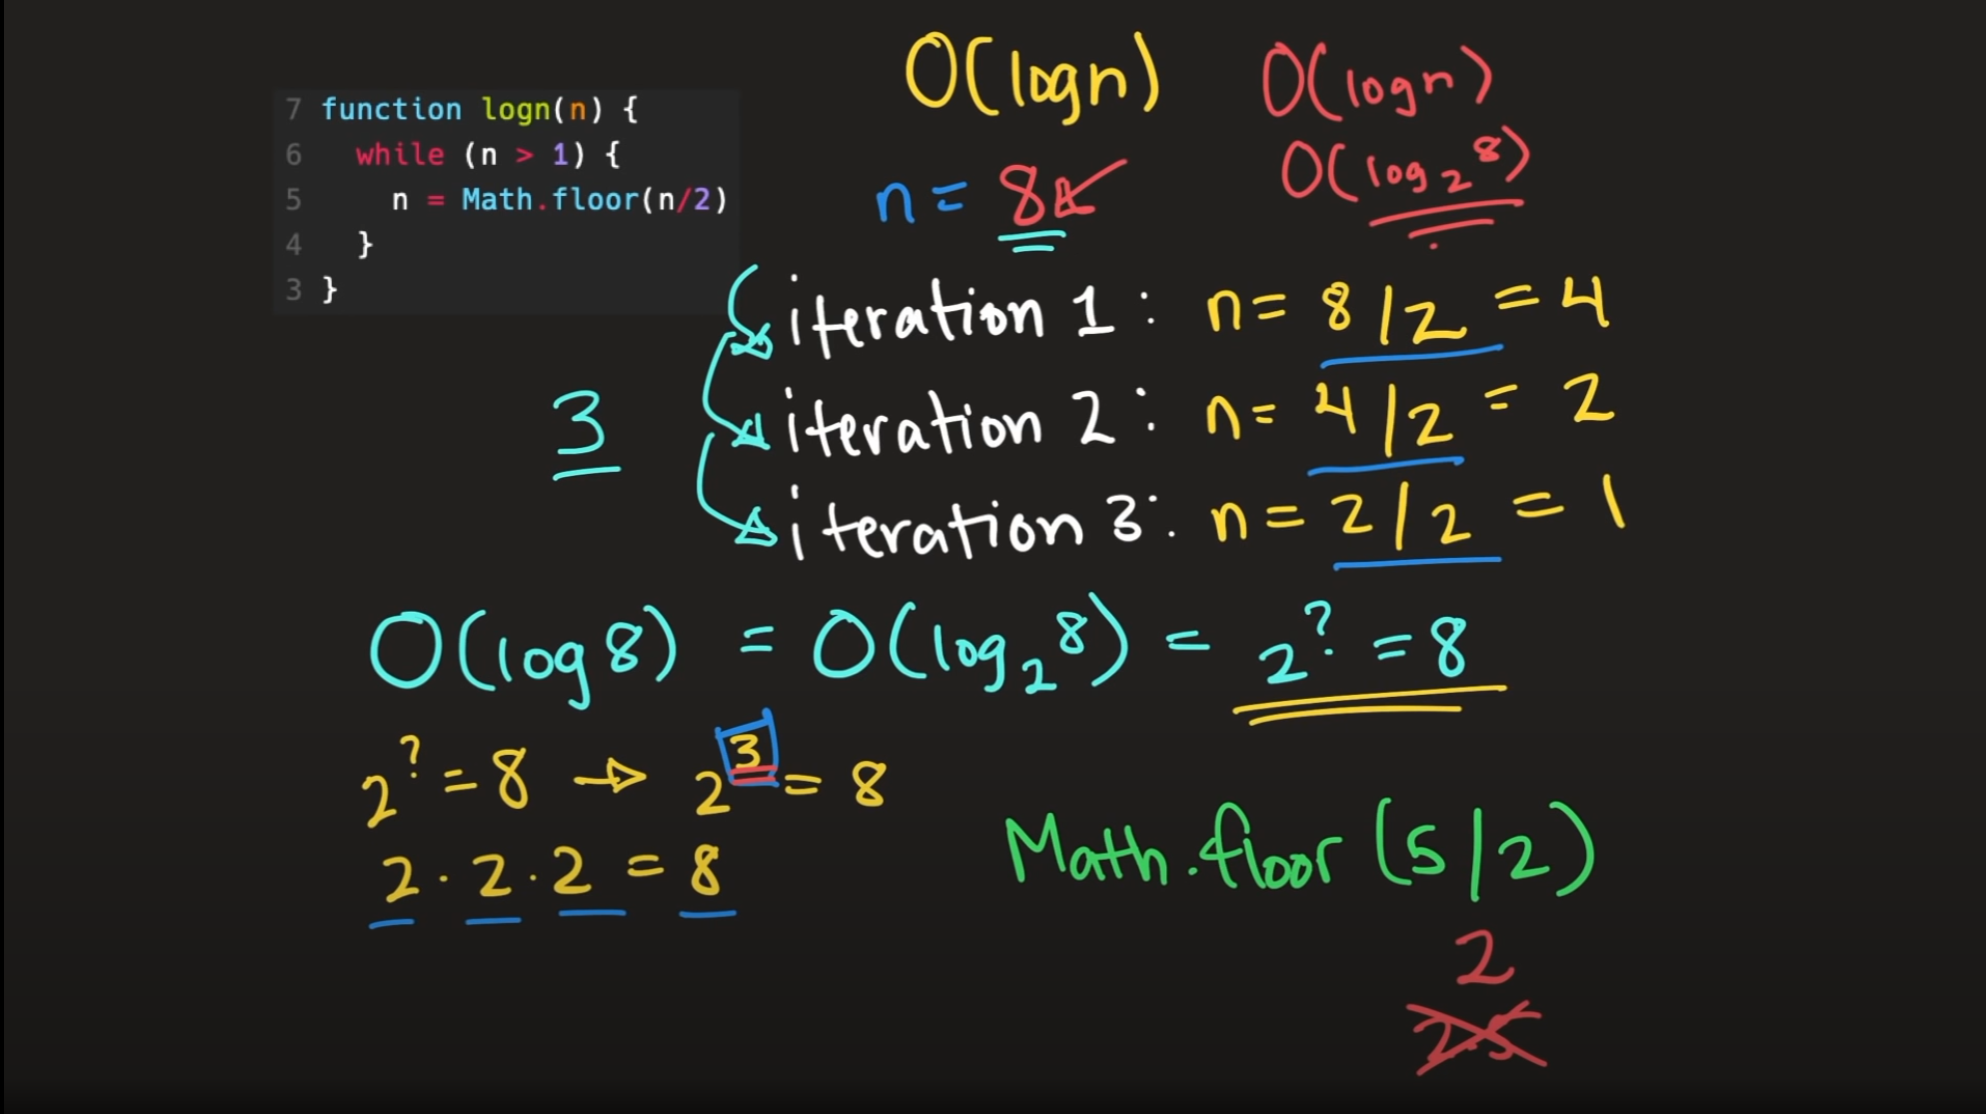 7 function logn(n) {
6 while (n > 1) {
5 n = Math.floor(n/2)
4 }
3 }
O(logn)
O(logn)
O(log₂8)
n = 8
iteration 1: n = 8/2 = 4
iteration 2: n = 4/2 = 2
iteration 3: n = 2/2 = 1
3
O(log 8) = O(log₂8) = 2^? = 8
2^? = 8 → 2^3 = 8
2 · 2 · 2 = 8
Math.floor(5/2)
2
2.5